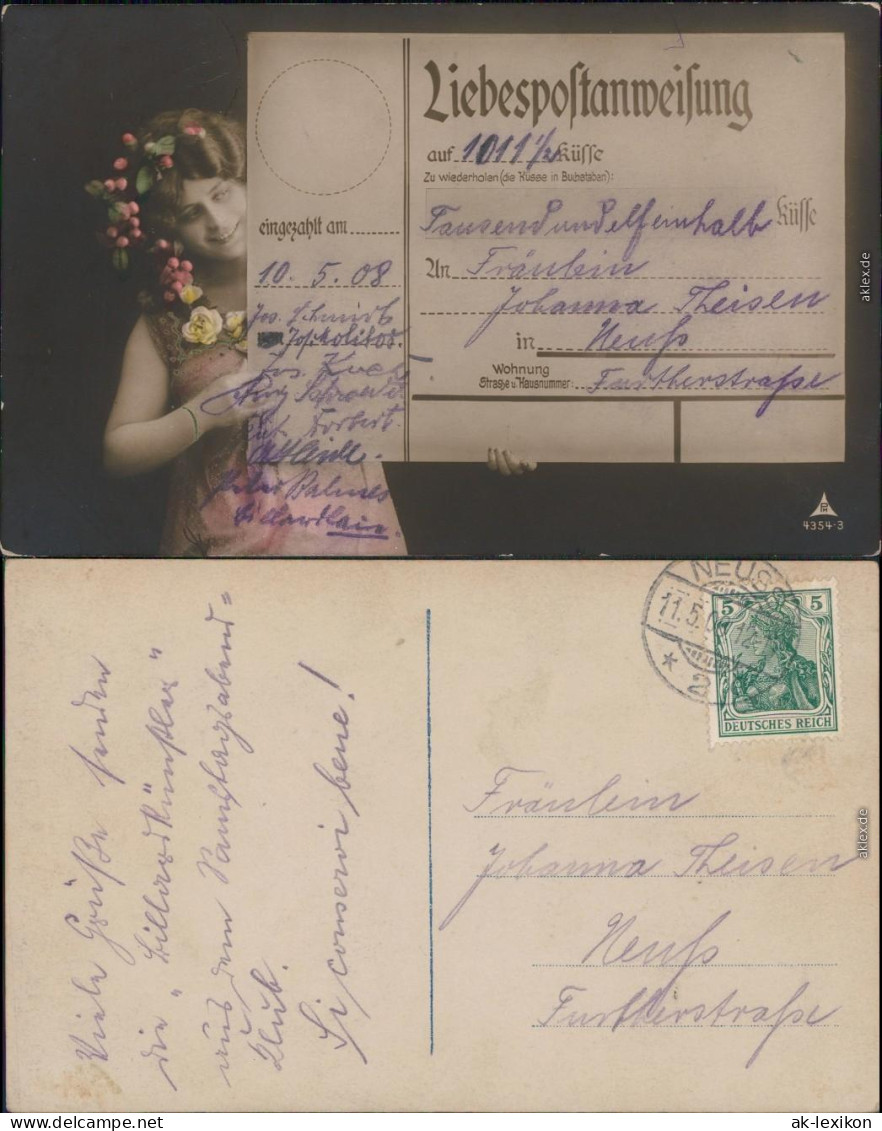 Liebespostanweisung
auf 1011 1/2 Küsse
Zu wiederholen (die Küsse in Buchstaben):
Tausendundelfeinhalb Küsse
An Fräulein
Johanna Theisen
in Neuss
Wohnung
Strasse u. Hausnummer: Furtherstraße
eingezahlt am
10. 5. 08
Jos. Schmidt
Jos.
Jos. Koch
Peter Palmes
4354-3
aklex.de
Viele Grüße senden
die "Billardkünstler"
aus dem Samstagabend=
Klub.
Si conservi bene!
NEUSS
11.5.0
2
5 5
DEUTSCHES REICH
Fräulein
Johanna Theisen
Neuss
Furtherstraße
aklex.de
ak-lexikon